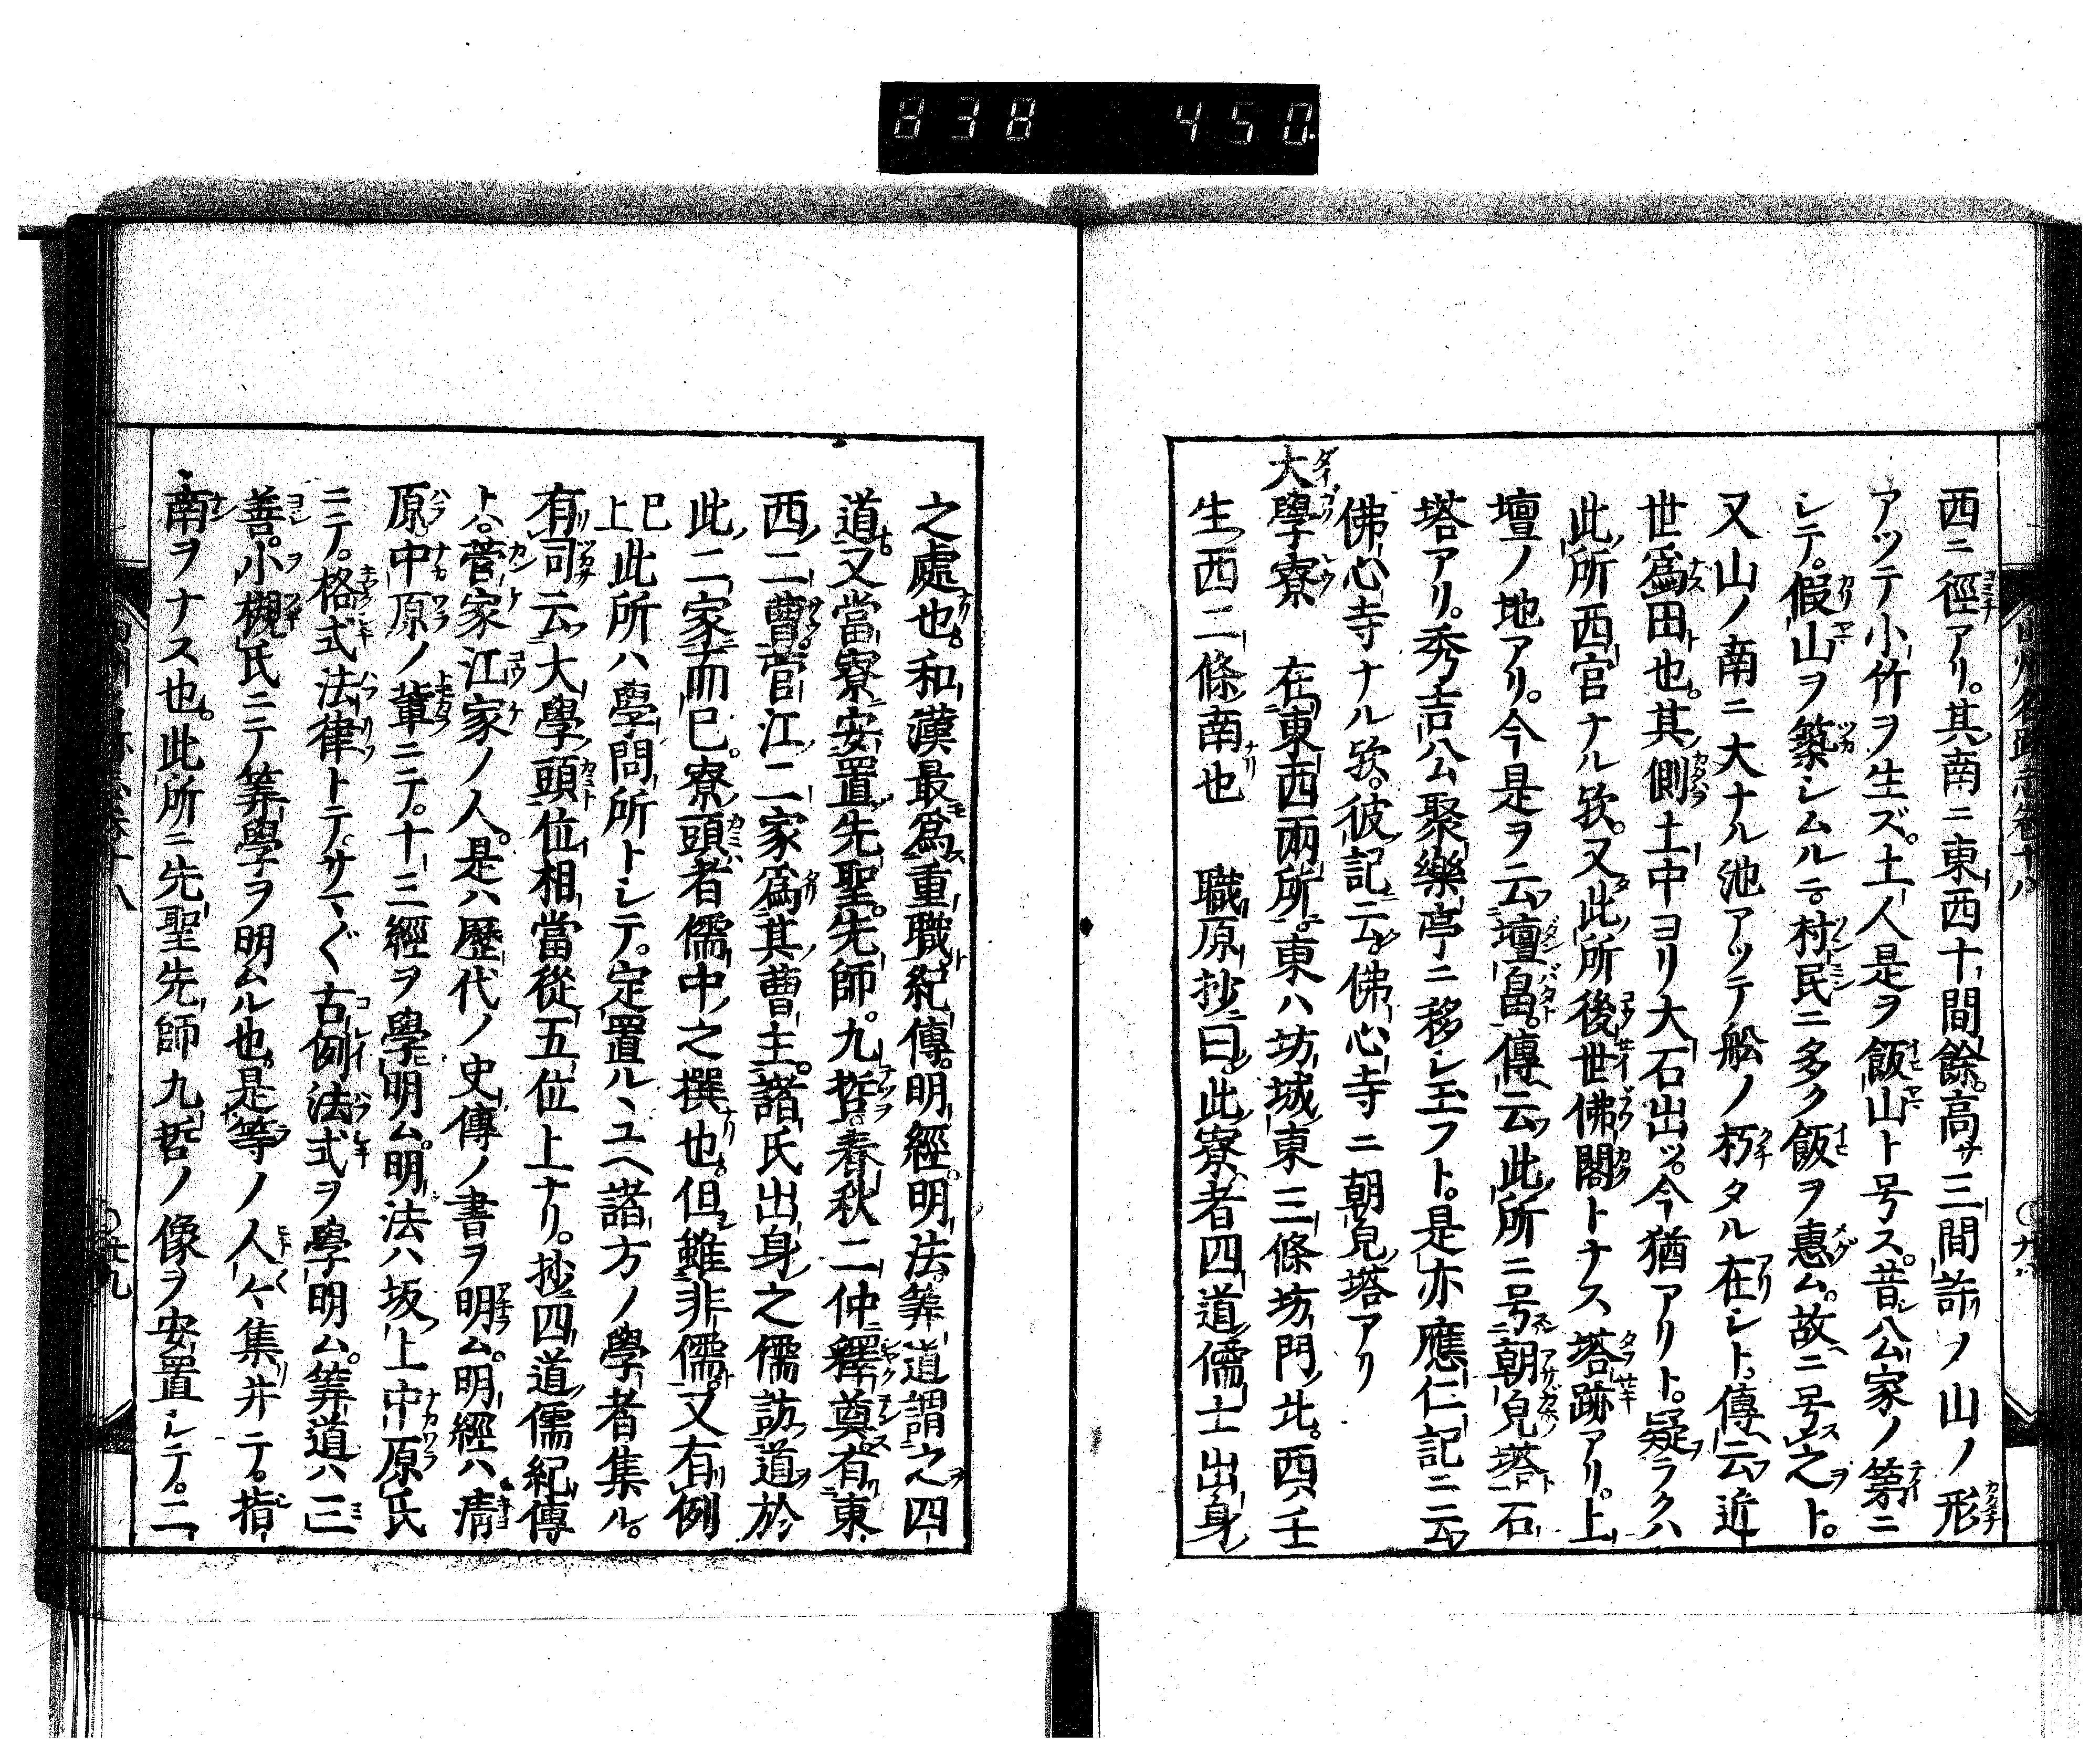 838 450
西ニ徑アリ。其南ニ東西十間餘。高サ三間許ノ山ノ形
アツテ小竹ヲ生ズ。土人是ヲ飯山ト号ス。昔シ公家ノ第ニ
シテ。假山ヲ築シムルニ。村民ニ多ク飯ヲ惠ム。故ニ号之ト。
又山ノ南ニ大ナル池アツテ舩ノ朽タル在シト。傳云近
世爲田也。其側土中ヨリ大石出ツ。今猶アリト。疑ラクハ
此所西宮ナル歟。又此所後世佛閣トナス塔跡アリ。上
壇ノ地アリ。今是ヲ云壇畠。傳云此所ニ号朝皃塔石
塔アリ。秀吉公聚樂亭ニ移シ玉フト。是亦應仁記ニ云
佛心寺ナル歟。彼記ニ云佛心寺ニ朝皃塔アリ
大學寮 在東西兩所。東ハ坊城東三條坊門北。西壬
生西二條南也 職原抄ニ曰此寮者四道儒士出身
之處也。和漢最爲重職紀傳。明經。明法。筭道謂之四
道。又當寮安置先聖。先師。九哲。春秋二仲釋奠。有東
西二曹。菅江二家爲其曹主。諸氏出身之儒訪道於
此二家而已。寮頭者儒中之撰也。但雖非儒。又有例
已上此所ハ學問所トシテ。定置ルヽユヘ諸方ノ學者集ル。
有司云大學頭位相當從五位上ナリ。抄四道儒紀傳
トハ。菅家江家ノ人。是ハ歷代ノ史傳ノ書ヲ明ム。明經ハ清
原。中原ノ輩ニテ。十三經ヲ學明ム。明法ハ坂上中原氏
ニテ。格式法律トテ。サマ〴〵古例法式ヲ學明ム。筭道ハ三
善。小槻氏ニテ筭學ヲ明ムル也。是等ノ人々集井テ。指
南ヲナス也。此所ニ先聖先師九哲ノ像ヲ安置シテ。二